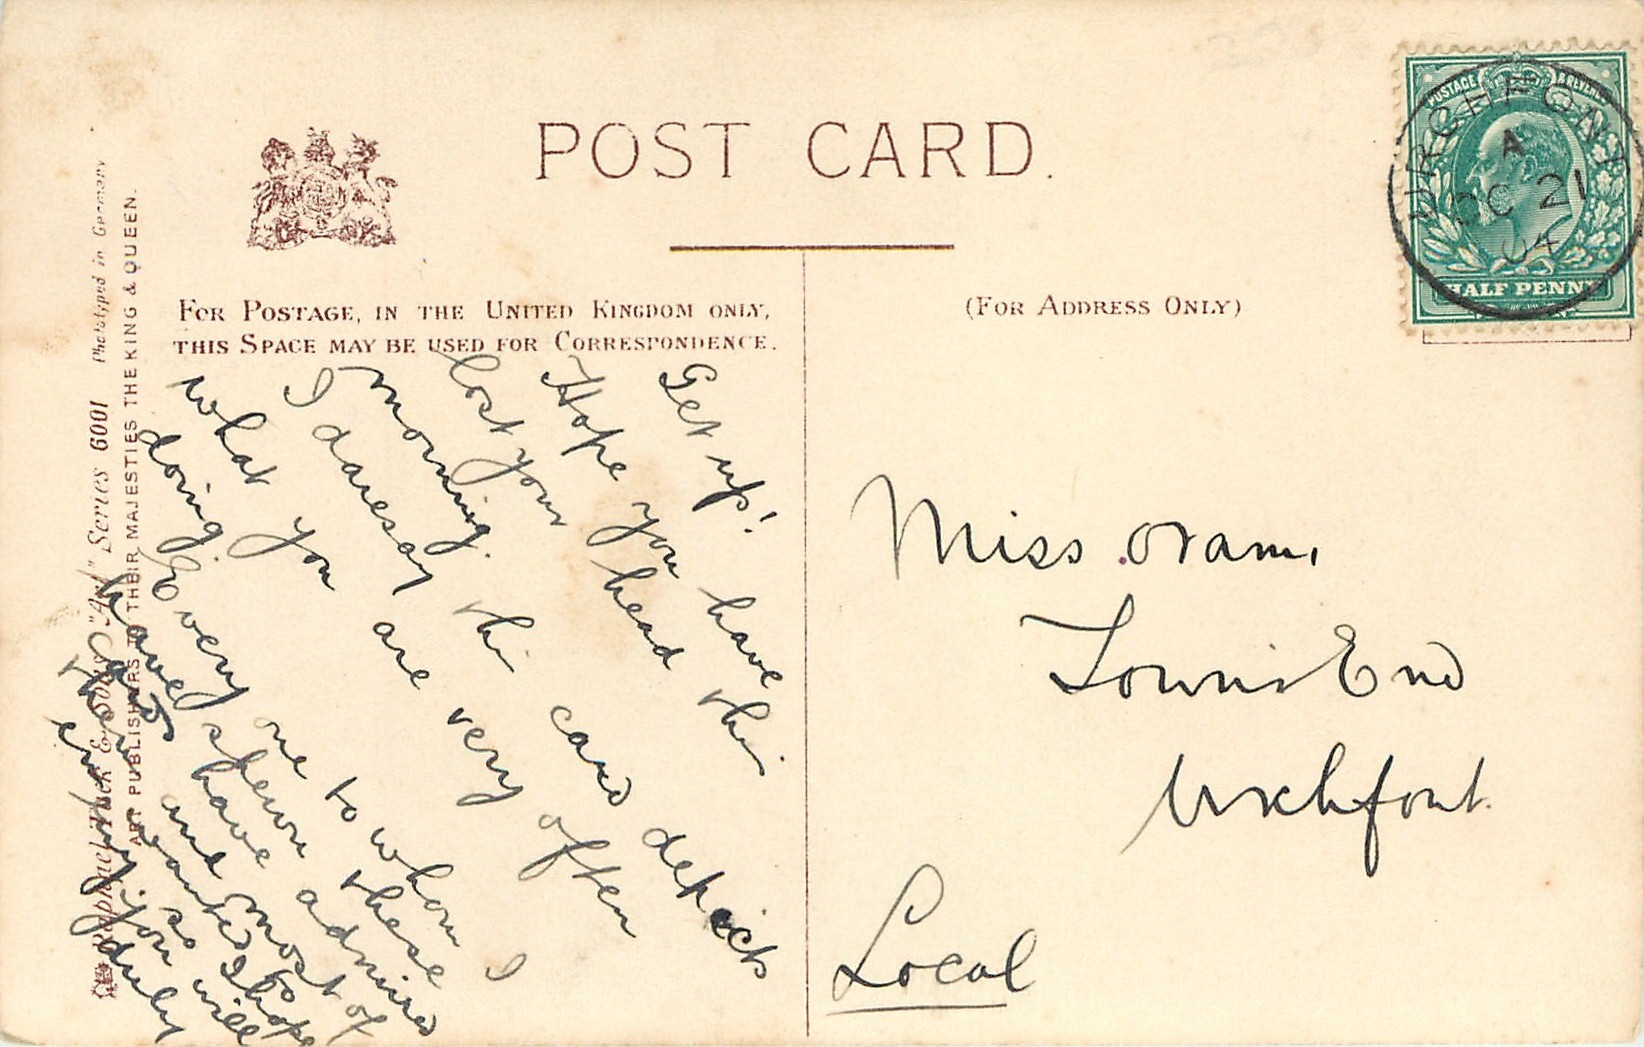 POST CARD.
FOR POSTAGE, IN THE UNITED KINGDOM ONLY,
THIS SPACE MAY BE USED FOR CORRESPONDENCE.
(FOR ADDRESS ONLY)
POSTAGE & REVENUE
HALF PENNY
URCHFONT
A
OC 21
04
Get up!
Hope you have
lost your head this
morning.
I daresay this card depicts
what you are very often
doing. Every one to whom I
have shewn these
cards have admired
them and most of
em wanted so I hope
you will
duly
Miss Oram,
Towns End
Urchfont.
Local
Raphael Tuck & Sons' "Art" Series 6001 Phototyped in Germany
ART PUBLISHERS TO THEIR MAJESTIES THE KING & QUEEN.